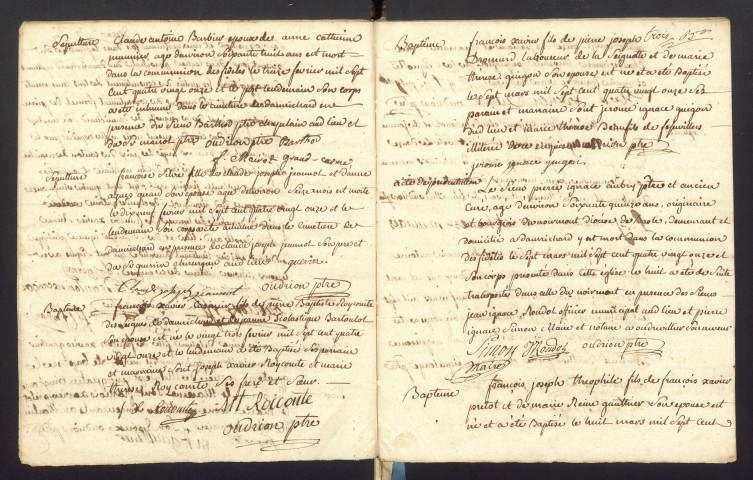 Sepulture Claude antoine Barbier epoux de anne catherine
munier, agé d'environ soixante huit ans est mort
dans la communion des fidelles le treize fevrier mil sept
cent quatre vingt onze et le jour lendemain son corps
a eté inhumé dans le cimetiere de danrichard en
presence du Sieur Barthod ptre chapelain au dit lieu et
du Sr mairot ptre oudrion ptre Barthod
f. Mairot grand carme
Sepulture francoise fille de claude joseph jeannot et d'anne
agnes son epouse agée d'environ six mois est morte
le dix sept fevrier mil sept cent quatre vingt onze et le
lendemain son corps a eté inhumé dans le cimetiere de
danrichard en presence de claude joseph jeannot son pere et
du Sr guerin chirurgien au dit lieu guerin
Claude joseph jeannot oudrion ptre
Bapteme francois xavier fils de pierre Baptiste Roycomte
de danrichard et de jeanne Scolastique Bartoulot
son epouse est né le vingt trois fevrier mil sept cent quatre
vingt onze et le lendemain a eté Baptisé ses parain
et marraine sont joseph xavier Roycomte et marie
therese Roycomte ses frere et sœur
j x Roicomte MT Roicomte
oudrion ptre
trois
Bapteme francois xavier fils de pierre joseph
Dromard laboureur de la Seignotte et de marie
therese guigon son epouse est né et a eté Baptisé
le sept mars mil sept cent quatre vingt onze ses
parain et maraine sont jerome ignace guigon
du dit lieu et marie therese de
illiterée de ce requise oudrion ptre
jerome ignace guigon
acte de presentation
Le Sieur pierre ignace aubry ptre et ancien
curé, agé d'environ soixante quinze ans, originaire
et bourgeois du noirmont diocese de basle, demeurant et
domicilié a danrichard y est mort dans la communion
des fidelles le sept mars mil sept cent quatre vingt onze et
son corps presenté dans cette eglise le huit a eté de suite
transporté dans celle du noirmont en presence des Sieurs
jean ignace Mondot officier municipal au dit lieu et pierre
ignace Simon Maire et notaire a
Simon Mondot oudrion ptre
Maire
Bapteme francois joseph theophile fils de francois xavier
pretot et de marie Reine gauthier son epouse est
né et a eté Baptisé le huit mars mil sept cent